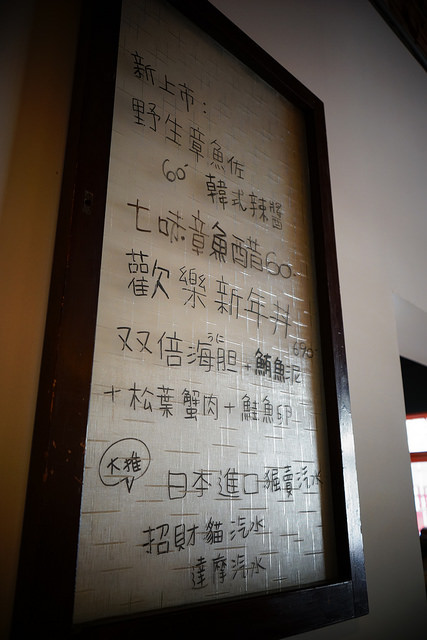 新上市:
野生章魚佐
60 韓式辣醬
七味章魚醋60
歡樂新年丼
690
うに
双倍海胆+鮪魚泥
+松葉蟹肉+鮭魚卵
大推
日本進口猸賣汽水
招財貓汽水
達摩汽水